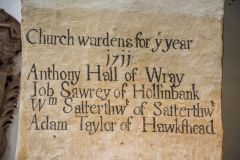 Church wardens for yᵉ year
1711
Anthony Hall of Wray
Job Sawrey of Hollinbank
Wᵐ Satterthwᵗ of Satterthwᵗ
Adam Taylor of Hawkshead